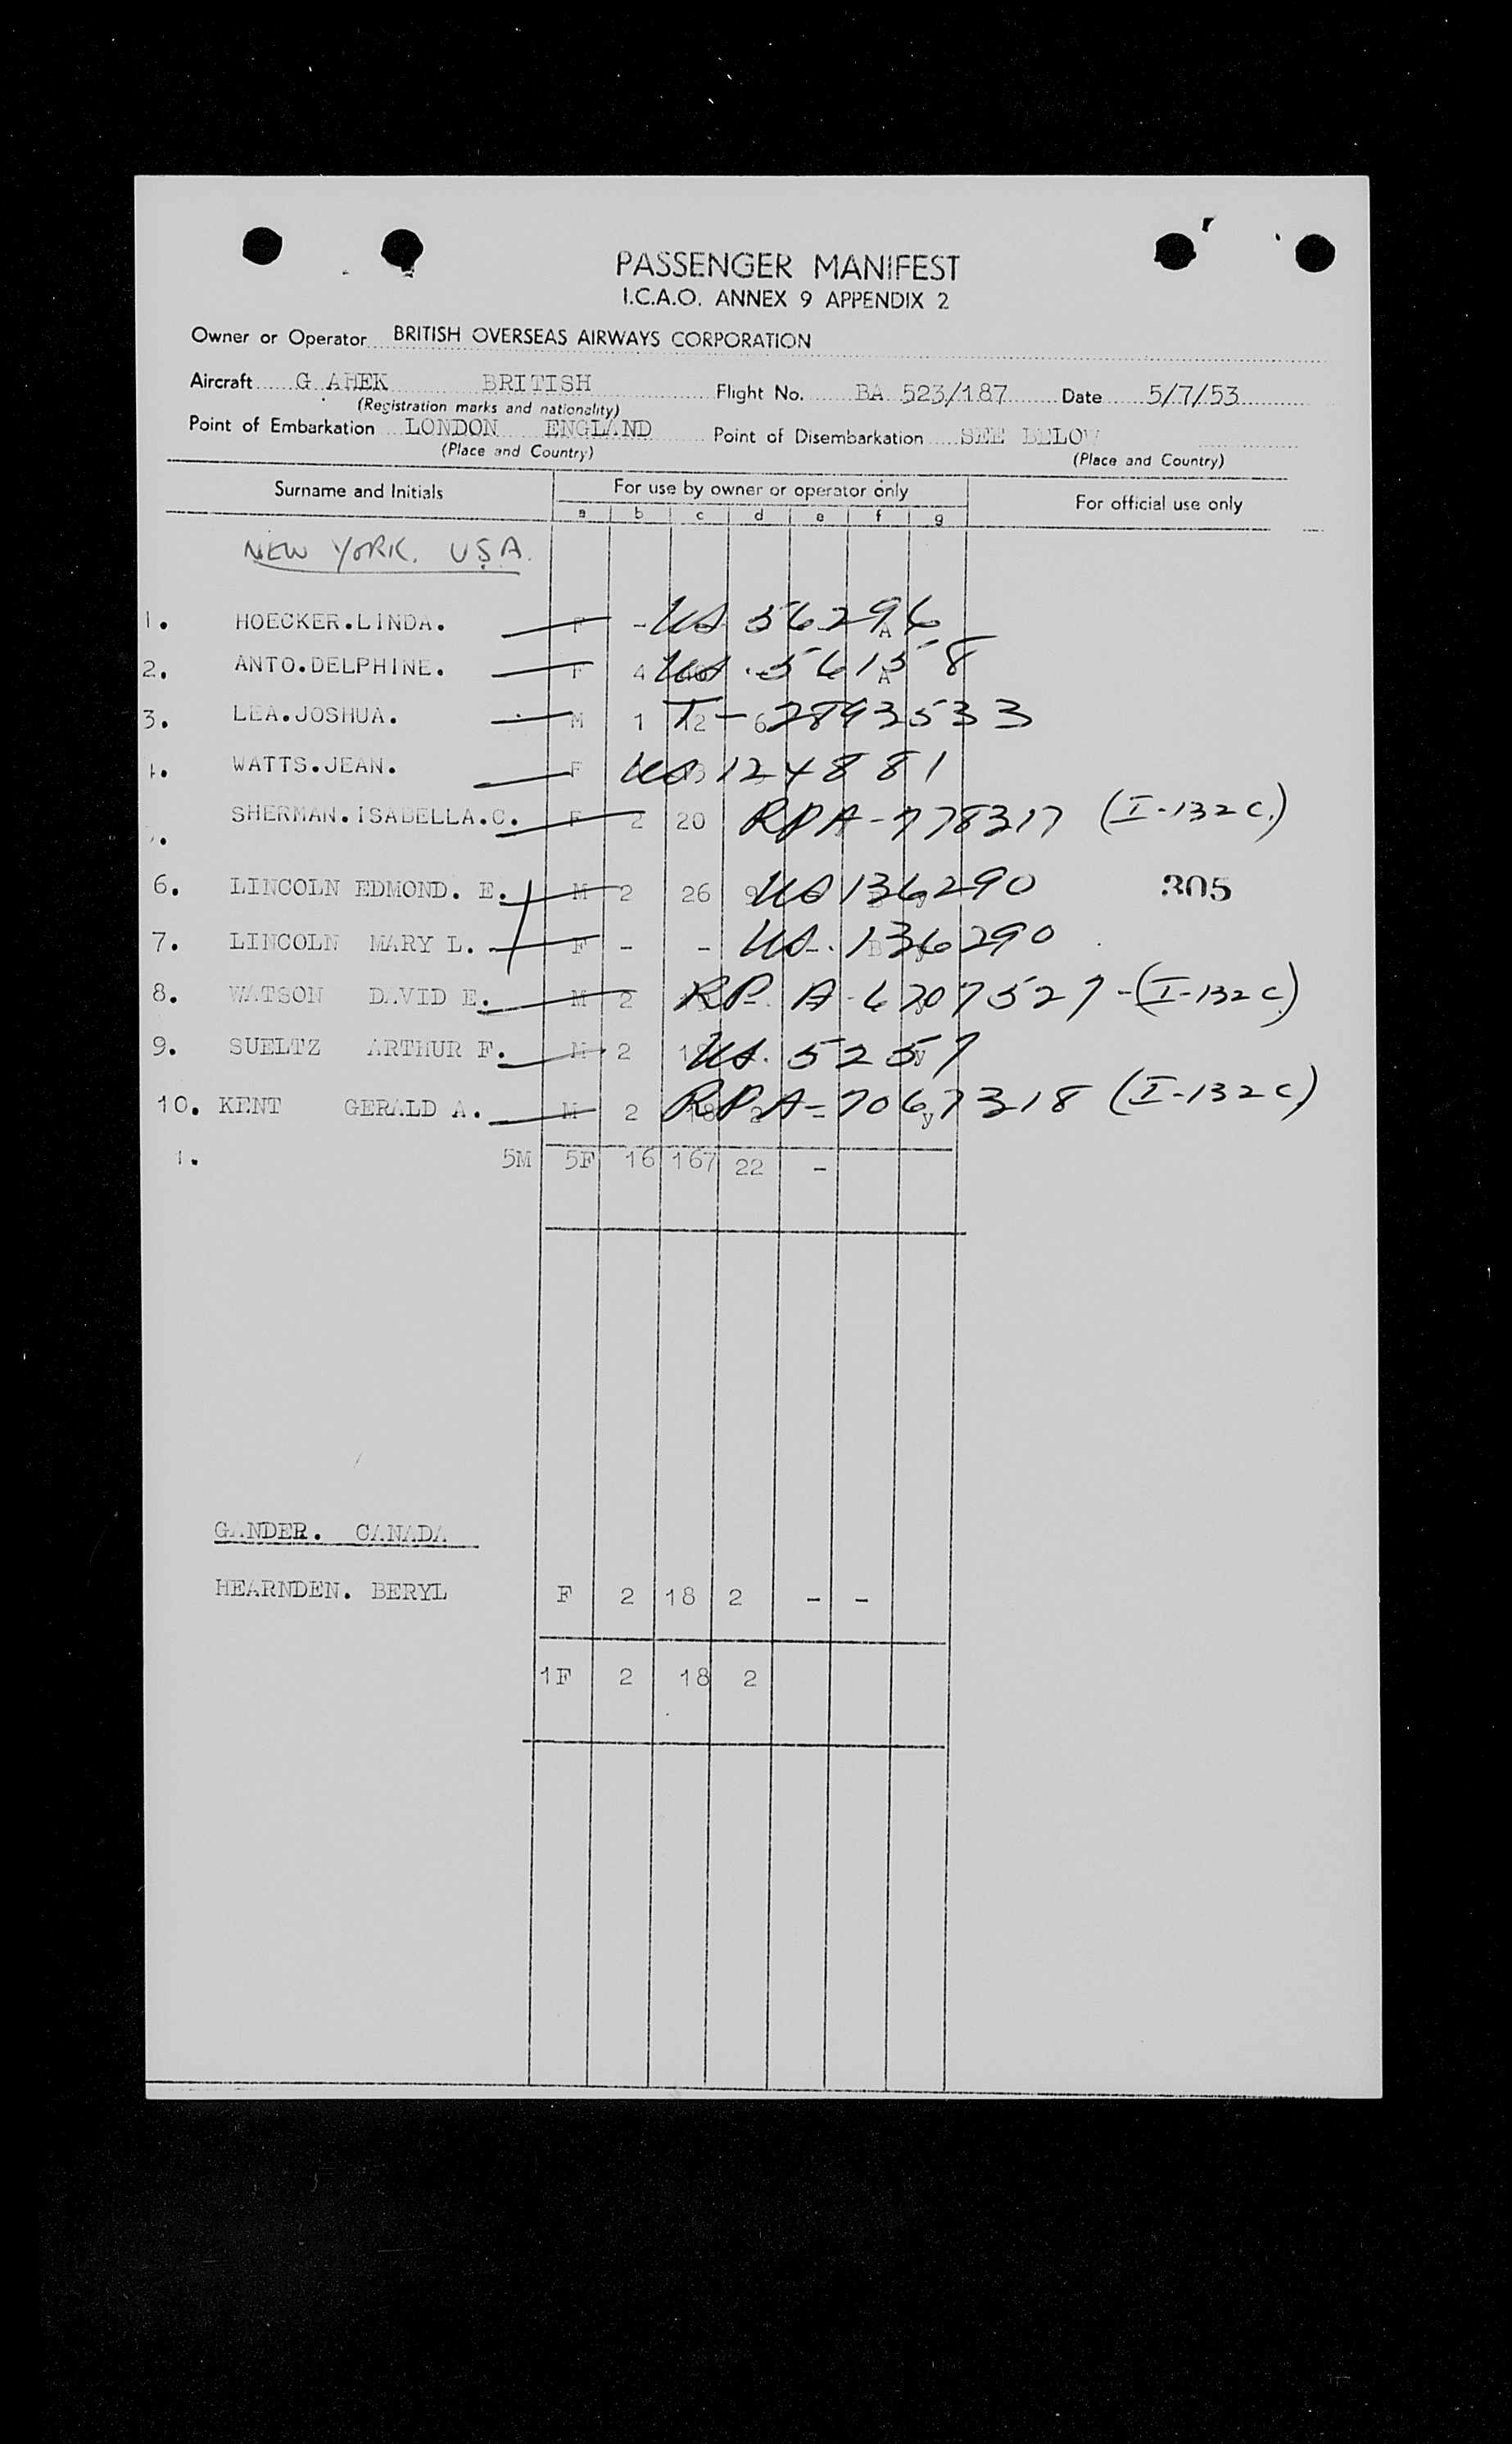 PASSENGER MANIFEST
I.C.A.O. ANNEX 9 APPENDIX 2
Owner or Operator BRITISH OVERSEAS AIRWAYS CORPORATION
Aircraft G AHEK BRITISH Flight No. BA 523/187 Date 5/7/53
(Registration marks and nationality)
Point of Embarkation LONDON ENGLAND Point of Disembarkation SEE BELOW
(Place and Country) (Place and Country)
Surname and Initials For use by owner or operator only For official use only
a b c d e f g
NEW YORK. USA.
1. HOECKER.LINDA. F - US 56296 A
2. ANTO.DELPHINE. F 4 US. 56158 A
3. LEA.JOSHUA. M 1 12 6 T-2893533
4. WATTS.JEAN. F US 124881
SHERMAN.ISABELLA.C. F 2 20 RPA-778317 (I-132C.)
6. LINCOLN EDMOND. E. M 2 26 9 US 136290 305
7. LINCOLN MARY L. F - - US. 136290 B
8. WATSON DAVID E. M 2 RP. A-6707527-(I-132C)
9. SUELTZ ARTHUR F. M 2 US. 5257 y
10. KENT GERALD A. M 2 18 2 - RPA-7067318 y (I-132C)
1. 5M 5F 16 167 22 -
GANDER. CANADA
HEARNDEN. BERYL F 2 18 2 - -
1F 2 18 2